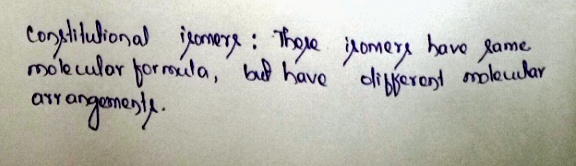 Constitutional isomers : These isomers have same
molecular formula, but have different molecular
arrangements.